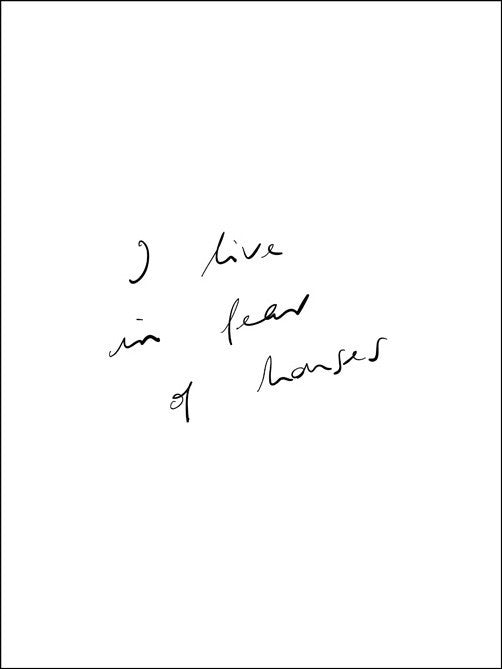 I live
in fear
of houses